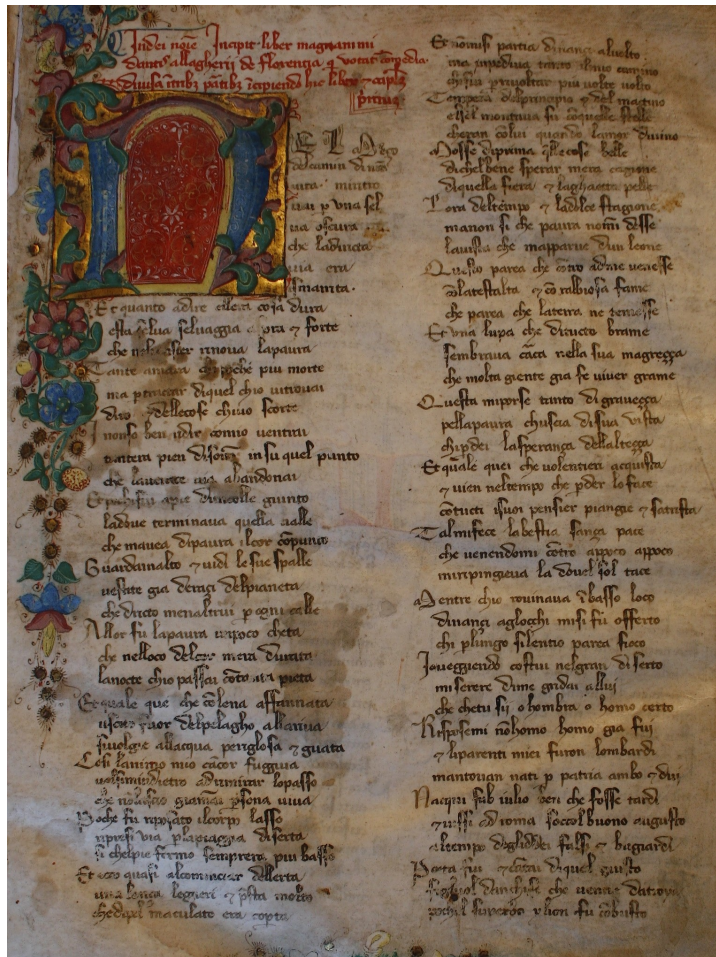 Indei noĩe Incipit liber magnanimi
dantis allagherij de florentia q̃ vocat comedia
diuisa
EL Meço
delcamin di nr̃a
uita mi ritro
uai p una sel
ua oscura
che ladiricta
uia era
smarrita.
Et quanto adire cosa dura
esta selua seluaggia et forte
che rinoua lapaura
Tante amara che pocho piu morte
ma p tractar diquel chio uitrouai
diro dellecose chiuo scorte
I nonso ben ridir comio uentrai
tantera pien disõno insu quel punto
che lauerace uia abandonai
giunto
ladoue terminaua quella ualle
che mauea dipaura ilcor cõpunto
Guardainalto et uidi lesue spalle
uestite gia deraçi delpianeta
che dricto menaltrui p ogni calle
Allor fu lapaura unpoco cheta
che nelloco delcor mera durata
lanocte chio passai cõto pieta
Et quale que che cõ lena affannata
uscito fuor delpelagho allariua
siuolgie allacqua periglosa et guata
Cosi lanimo mio cãcor fuggiua
uolsimindietro adrimirar lopasso
che nõ lascio giamai psona uiua
Poche fu riposato ilcorpo lasso
ripresi uia plapiaggia diserta
si chelpie fermo semprera piu basso
Et ecco quasi alcominciar dellerta
una lonça leggieri et p̃sta molto
che dipel maculato era coperta
Et nõmisi partia dinanç aluolto
ma inpediua tanto ilmio camino
chifui p ritornar piu volte volto
Tempera delprincipio del mactino
elsol montaua su cõquelle stelle
cheran cõlui quando lamor diuino
Mosse diprima q̃lle cose belle
dichel bene sperar mera cagione
diquella fiera et lagaetta pelle
Lora deltempo et ladolce stagione
manon si che paura nomi desse
lauista che mapparue dun leone
Questo parea che cõtro adme uenesse
cõlatestalta et cõ rabbiosa fame
che parea che laterra ne temesse
Et una lupa che dituto brame
sembraua cãca nella sua magreçça
che molta giente gia fe uiuer grame
Questa miporse tanto di graueçça
pellapaura chuscia disua vista
chipdei lasperança dellalteçça
Et quale quei che uolentieri acquista
et uien neltempo che pder loface
cõtucti isuoi pensier piangie et satrista
Tal mifece labestia sança pace
che uenendomi cõtro appoco appoco
miripingieua la douel sol tace
Mentre chio rouinaua ĩ basso loco
dinançi aglocchi misi fu offerto
chi p lungo silentio parea fioco
Io ueggiendo costui nelgran diserto
miserere dime gridai allui
che chetu sii o hombra o homo certo
Risposemi nõ homo homo gia fui
et liparenti miei furon lombardi
mantouan nati p patria ambo et dui
Nacqui sub iulio ben che fosse tardi
et uissi adroma soctol buono augusto
altempo deglidei falsi et bugiardi
Poeta fui et cãtai diquel giusto
figluol danchise che uenne datroia
poichel superbo ylion fu cõbusto